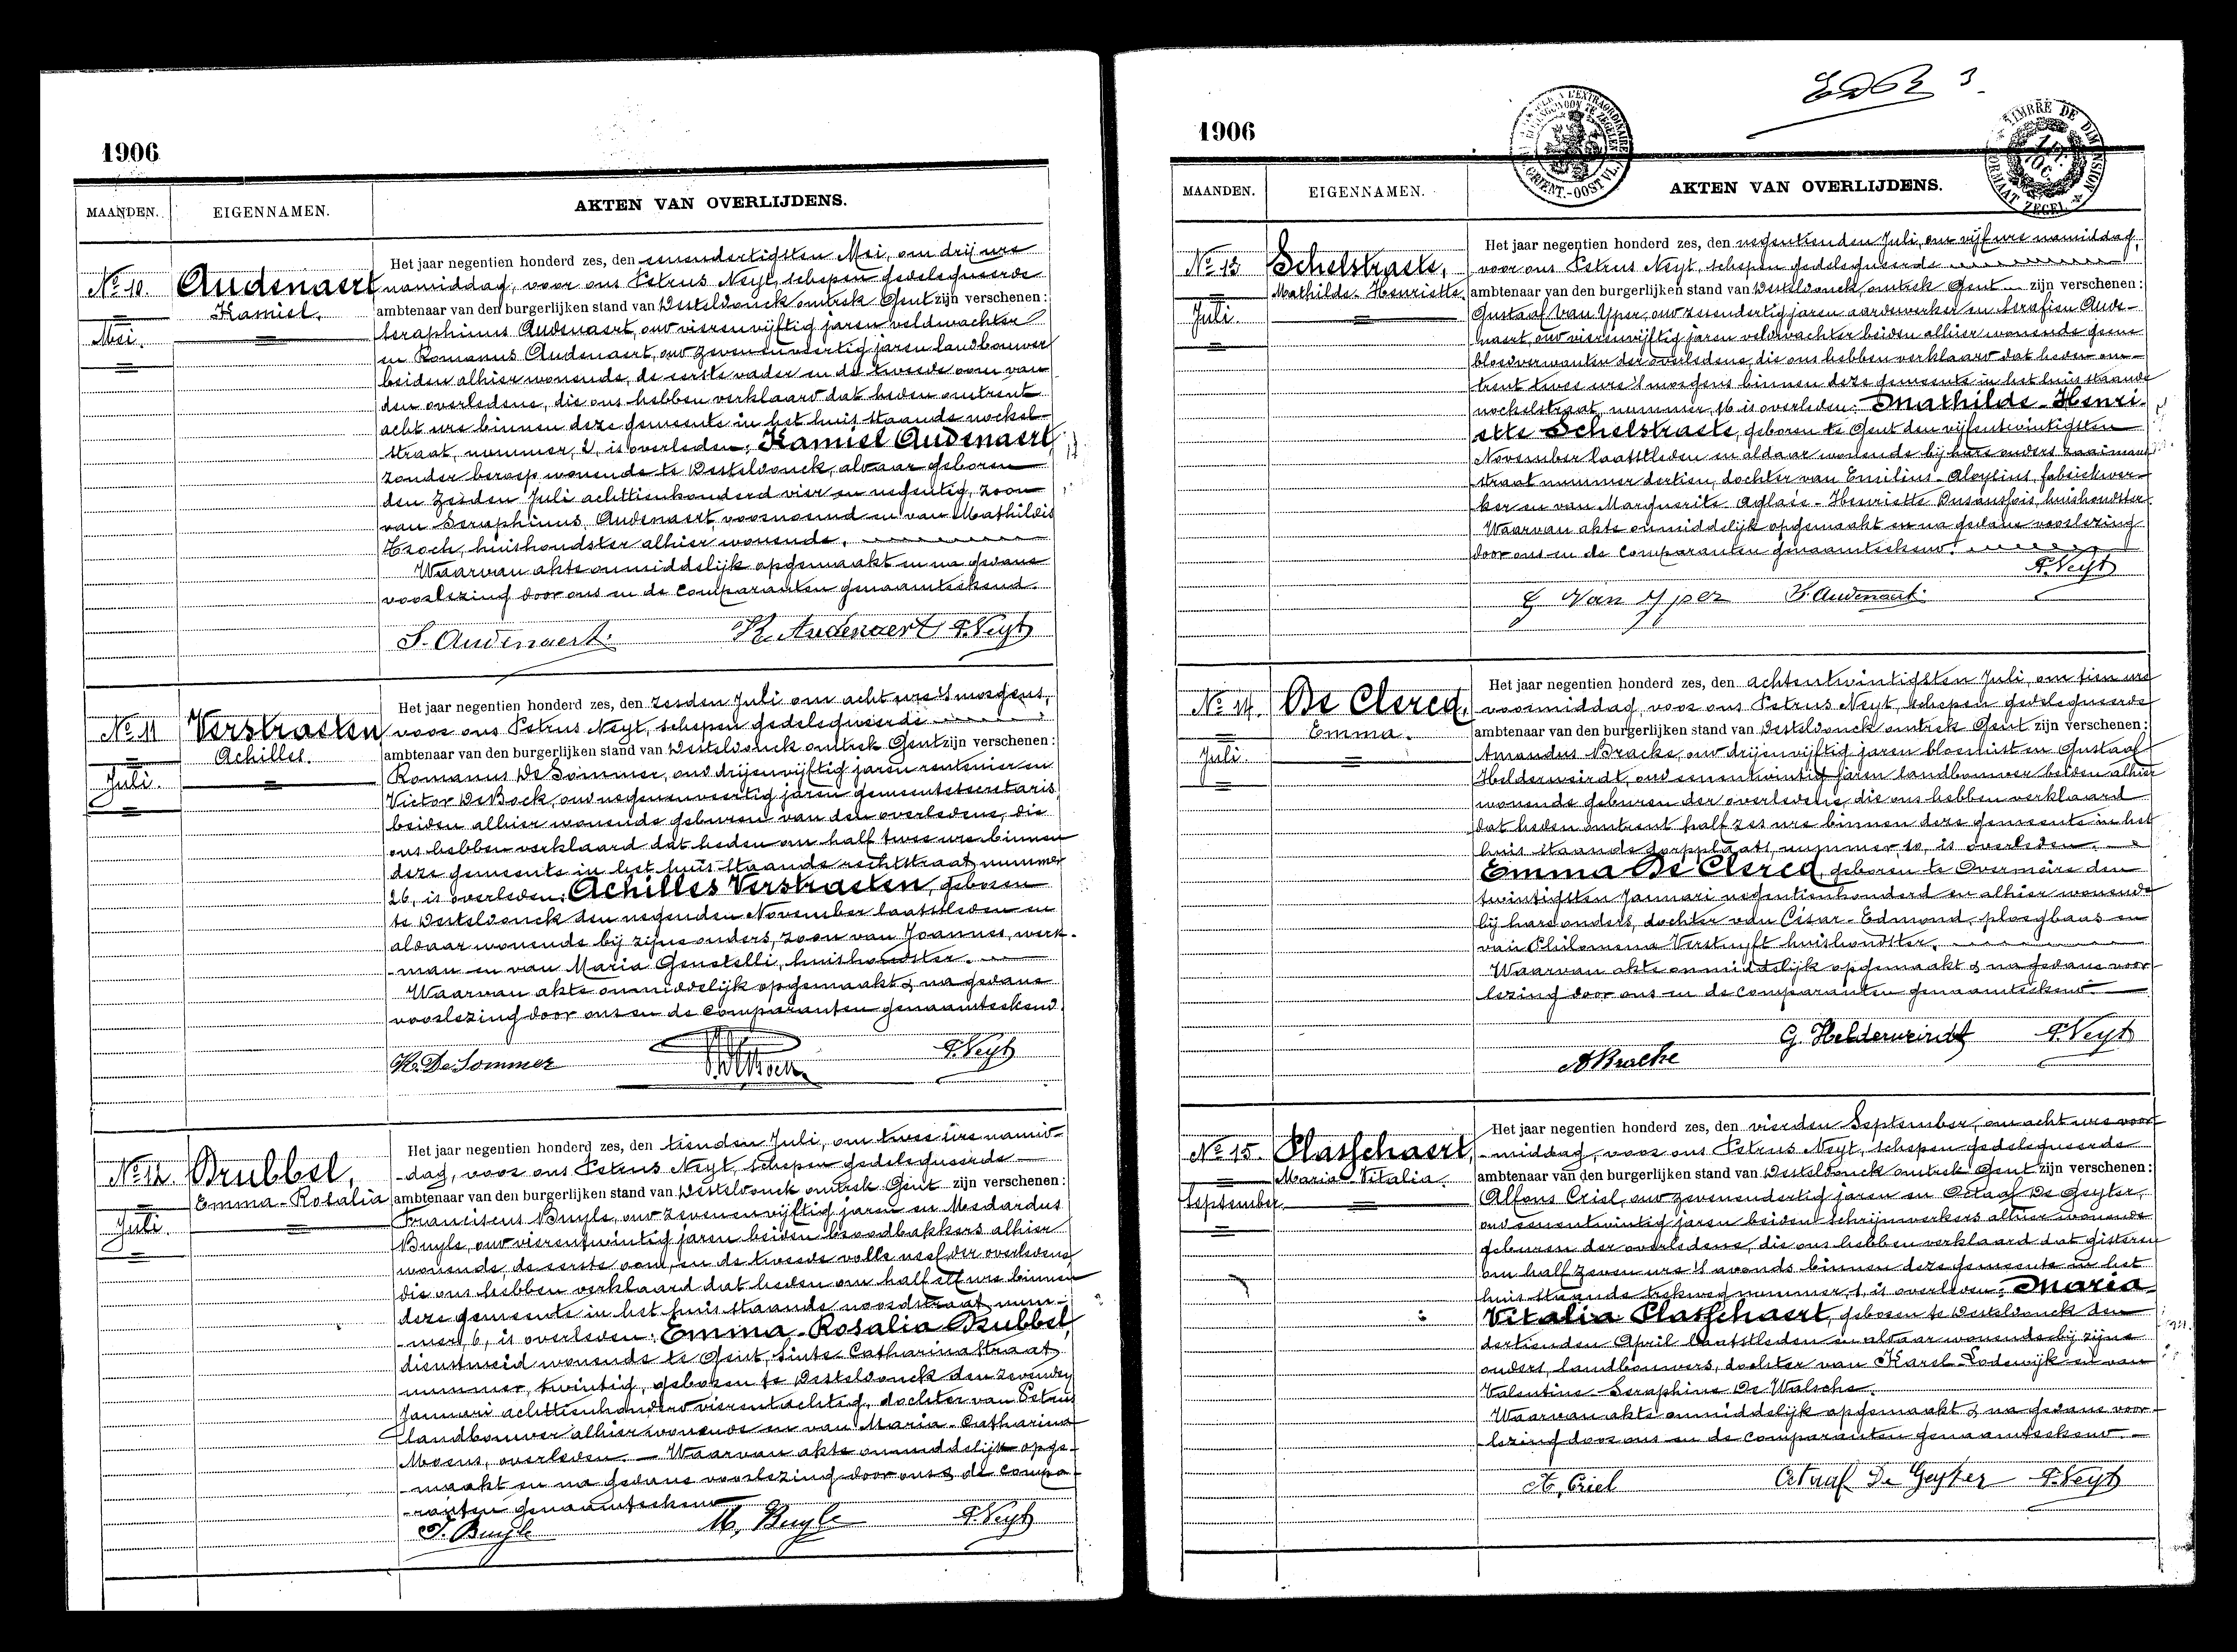 1906
MAANDEN.
EIGENNAMEN.
AKTEN VAN OVERLIJDENS.
No 10.
Mei.
Audenaert
Kamiel.
Het jaar negentien honderd zes, den eenendertigsten Mei, om drij ure
namiddag, voor ons Petrus Neyt, schepen gedelegueerde
ambtenaar van den burgerlijken stand van Desteldonck omtrek Gent zijn verschenen:
Seraphinus Audenaert, oud vierenvijftig jaren veldwachter
en Romanus Audenaert, oud zevenenveertig jaren landbouwer
beiden alhier wonende, de eerste vader en de tweede oom van
den overledene, die ons hebben verklaard dat heden omtrent
acht ure binnen deze gemeente in het huis staande nockel-
straat, nummer, 2, is overleden; Kamiel Audenaert,
zonder beroep, wonende te Desteldonck, aldaar geboren
den zesden Juli achttienhonderd vier en negentig, zoon
van Seraphinus Audenaert, voornoemd en van Mathildis
huishoudster alhier wonende.
Waarvan akte onmiddelijk opgemaakt en na gedane
voorlezing door ons en de comparanten genaamteekend.
S. Audenaert R. Audenaert P. Neyt
No 11
Juli.
Verstraeten
Achilles.
Het jaar negentien honderd zes, den zesden Juli om acht ure 's morgens,
voor ons Petrus Neyt, schepen gedelegueerde
ambtenaar van den burgerlijken stand van Desteldonck omtrek Gent zijn verschenen:
Romanus De Sommer, oud drijenvijftig jaren rentenier en
Victor De Bock, oud negenenveertig jaren gemeentesecretaris,
beiden alhier wonende geburen van den overledene, die
ons hebben verklaard dat heden om half twee ure binnen
deze gemeente in het huis staande rechtstraat nummer
26, is overleden; Achilles Verstraeten, geboren
te Desteldonck den negenden November laatstleden en
aldaar wonende bij zijne ouders, zoon van Joannes, werk-
man en van Maria Genetelli, huishoudster.
Waarvan akte onmiddelijk opgemaakt & na gedane
voorlezing door ons en de comparanten genaamteekend.
R. De Sommer P. Neyt
No 12.
Juli.
Drubbel,
Emma-Rosalia
Het jaar negentien honderd zes, den tienden Juli, om twee ure namid-
dag, voor ons Petrus Neyt, schepen gedelegueerde
ambtenaar van den burgerlijken stand van Desteldonck omtrek Gent zijn verschenen:
Franciscus Buyle, oud zevenenvijftig jaren en Medardus
Buyle, oud vierentwintig jaren beiden broodbakkers alhier
wonende, de eerste oom, en de tweede volle neef der overledene,
die ons hebben verklaard dat heden om half elf ure binnen
deze gemeente in het huis staande noordstraat, num-
mer, 6, is overleden: Emma-Rosalia Drubbel,
dienstmeid wonende te Gent, Sinte-Catharinastraat
nummer, twintig, geboren te Desteldonck den zevenden
Januari achttienhonderd vierentachtig, dochter van Petrus
landbouwer alhier wonende en van Maria-Catharina
Moens, overleden. Waarvan akte onmiddelijk opge-
maakt en na gedane voorlezing door ons & de compa-
ranten genaamteekend
F. Buyle M. Buyle P. Neyt
1906
MAANDEN.
EIGENNAMEN.
AKTEN VAN OVERLIJDENS.
TIMBRE DE DIMENSION
FORMAAT ZEGEL
No 13
Juli.
Schelstraete,
Mathilde-Henriette.
Het jaar negentien honderd zes, den negentienden Juli, om vijf ure namiddag,
voor ons Petrus Neyt, schepen gedelegueerde
ambtenaar van den burgerlijken stand van Desteldonck, omtrek Gent zijn verschenen:
Gustaaf Van Yper, oud zesendertig jaren aardewerker en Serafien Aude-
naert, oud vierenvijftig jaren veldwachter beiden alhier wonende geene
bloedverwanten der overledene, die ons hebben verklaard dat heden om-
trent twee ure 's morgens binnen deze gemeente in het huis staande
nockelstraat, nummer, 16 is overleden: Mathilde-Henri-
ette Schelstraete, geboren te Gent den vijfentwintigsten
November laatstleden en aldaar wonende bij hare ouders
straat nummer dertien, dochter van Emilius-Aloysius, fabriekwer-
ker en van Marguerite-Aglaïe-Henriette huishoudster.
Waarvan akte onmiddelijk opgemaakt en na gedane voorlezing
door ons en de comparanten genaamteekend.
G Van Yper S. Audenaert P. Neyt
No 14.
Juli.
De Clercq,
Emma.
Het jaar negentien honderd zes, den achtentwintigsten Juli, om tien ure
voormiddag, voor ons Petrus Neyt, schepen gedelegueerde
ambtenaar van den burgerlijken stand van Desteldonck omtrek Gent zijn verschenen:
Amandus Bracke, oud drijenvijftig jaren bloemist en Gustaaf
Helderweirdt, oud eenentwintig jaren landbouwer beiden alhier
wonende geburen der overledene, die ons hebben verklaard
dat heden omtrent half zes ure binnen deze gemeente in het
huis staande dorpplaats, nummer, 10, is overleden.
Emma De Clercq, geboren te Overmeire den
twintigsten Januari negentienhonderd en alhier wonende
bij hare ouders, dochter van César-Edmond, ploegbaas en
van Philomena Verstuyft huishoudster.
Waarvan akte onmiddelijk opgemaakt & na gedane voor-
lezing door ons en de comparanten genaamteekend.
A Bracke G. Helderweirdt P. Neyt
No 15.
September
Plasschaert,
Maria-Vitalia.
Het jaar negentien honderd zes, den vierden September, om acht ure voor-
middag, voor ons Petrus Neyt, schepen gedelegueerde
ambtenaar van den burgerlijken stand van Desteldonck omtrek Gent zijn verschenen:
Alfons Criel, oud zevenendertig jaren en Octaaf De Geyter,
oud eenentwintig jaren beiden schrijnwerkers alhier wonende
geburen der overledene, die ons hebben verklaard dat gisteren
om half zeven ure 's avonds binnen deze gemeente in het
huis staande trekweg nummer, 1, is overleden: Maria-
Vitalia Plasschaert, geboren te Desteldonck den
dertienden April laatstleden en aldaar wonende bij zijne
ouders, landbouwers, dochter van Karel-Lodewijk en van
Valentine-Seraphine De Walsche.
Waarvan akte onmiddelijk opgemaakt & na gedane voor-
lezing door ons en de comparanten genaamteekend.
A. Criel Octaaf De Geyter P. Neyt